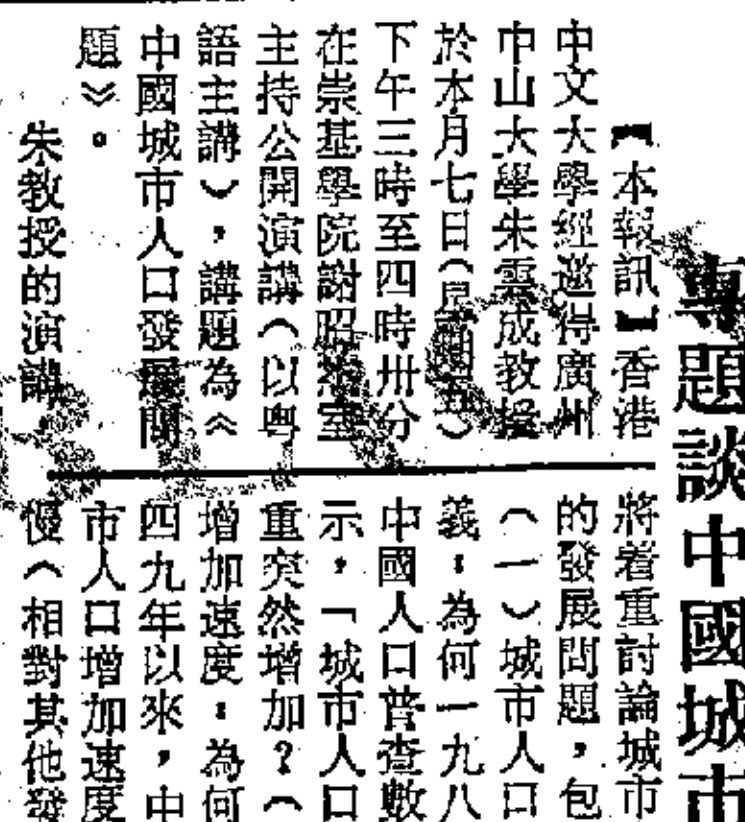 專題談中國城市
【本報訊】香港
中文大學經邀得廣州
中山大學朱雲成教授
於本月七日（星期五）
下午三時至四時卅分
在崇基學院謝昭室
主持公開演講（以粵
語主講），講題為《
中國城市人口發展問
題》。
朱教授的演講
將着重討論城市
的發展問題，包
（一）城市人口
義：為何一九八
中國人口普查數
示，「城市人口
重突然增加？（
增加速度：為何
四九年以來，中
市人口增加速度
慢（相對其他發